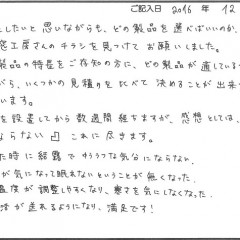 ご記入日 2016 年 12
したいと思いながらも、どの製品を選べばいいのか、
窓工房さんのチラシを見つけてお願いしました。
製品の特長をご存知の方に、どの製品が適している
がら、いくつかの見積りを比べて決めることが出来
います。
を設置してから数週間経ちますが、感想としては、
ならない』これに尽きます。
た時に結露でゆううつな気分にならない、
が気になって眠れないということが無くなった、
温度が調整しやすくなり、寒さを気にしなくなった、
が走れるようになり、満足です！